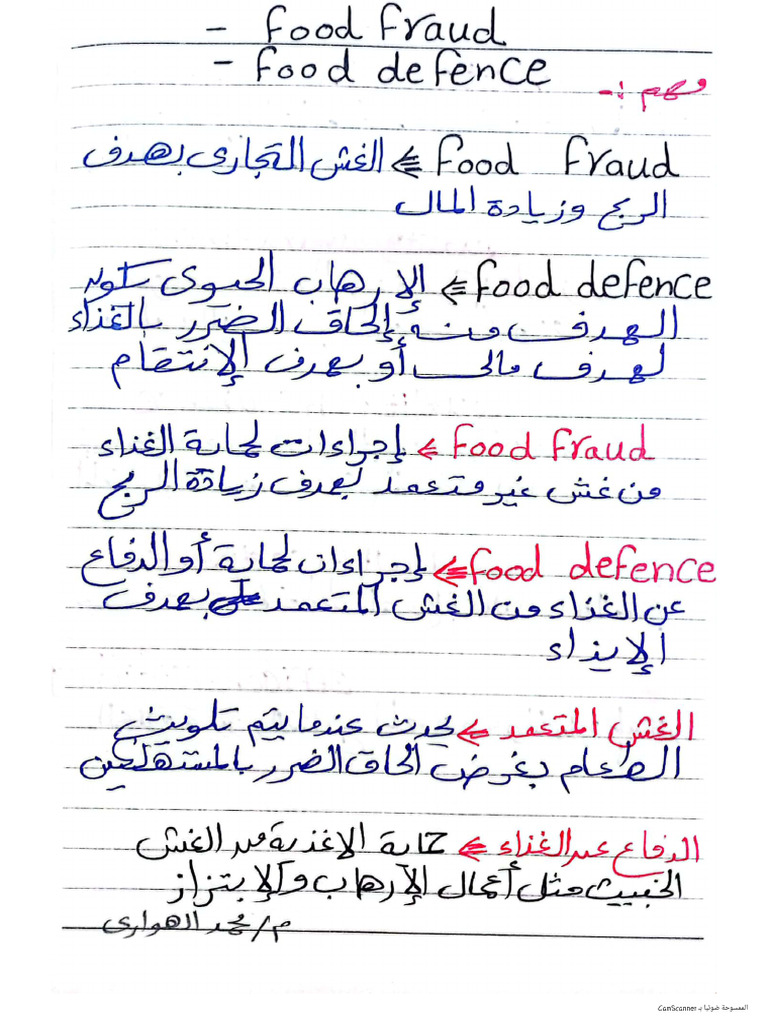 - Food Fraud
- Food defence
مهم :-
Food Fraud ⇐ الغش التجارى بهدف
الربح وزيادة المال
Food defence ⇐ الإرهاب الحيوى يكون
الهدف منه إلحاق الضرر بالغذاء
لهدف مالى أو بهدف الإنتقام
Food Fraud ⇐ إجراءات لحماية الغذاء
من غش غير متعمد بهدف زيادة الربح
Food defence ⇐ إجراءات لحماية أو الدفاع
عن الغذاء من الغش المتعمد بهدف
الإيذاء
الغش المتعمد ⇐ يحدث عندما يتم تلويث
الطعام بغرض الحاق الضرر بالمستهلكين
الدفاع عن الغذاء ⇐ حماية الاغذية من الغش
الخبيث مثل أعمال الإرهاب والإبتزاز
م/ محمد الهوارى
الممسوحة ضوئيا بـ CamScanner